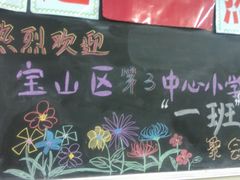 热烈欢迎
宝山区第3中心小学
“一班”
聚会